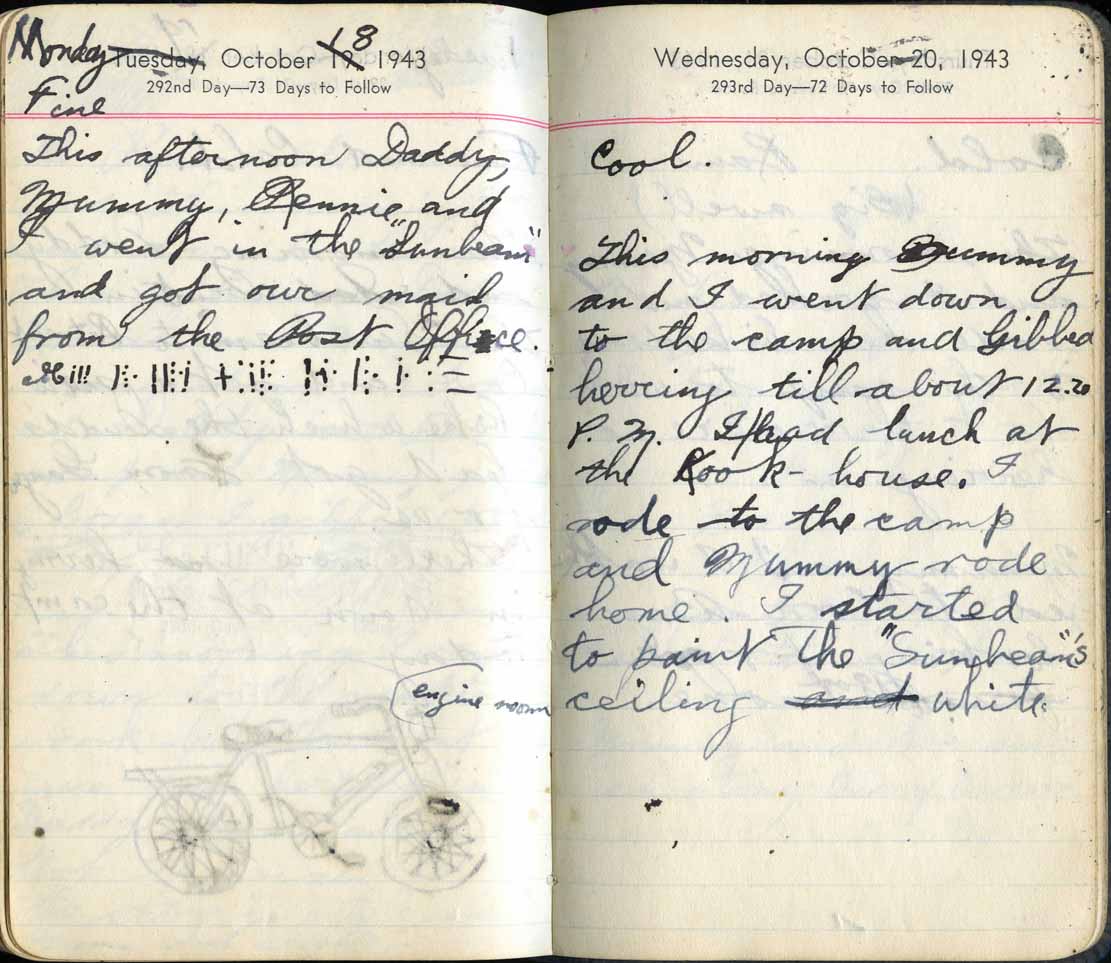 Monday Tuesday, October 19 18 1943
292nd Day—73 Days to Follow
Fine
This afternoon Daddy,
Mummy, Rennie and
I went in the "Sunbeam"
and got our mail
from the Post Office.
engine room
Wednesday, October 20, 1943
293rd Day—72 Days to Follow
Cool.
This morning Mummy
and I went down
to the camp and Gibbed
herring till about 12.20
P. M. I had lunch at
the Kook-house. I
rode to the camp
and Mummy rode
home. I started
to paint the "Sunbeam's
ceiling and white.